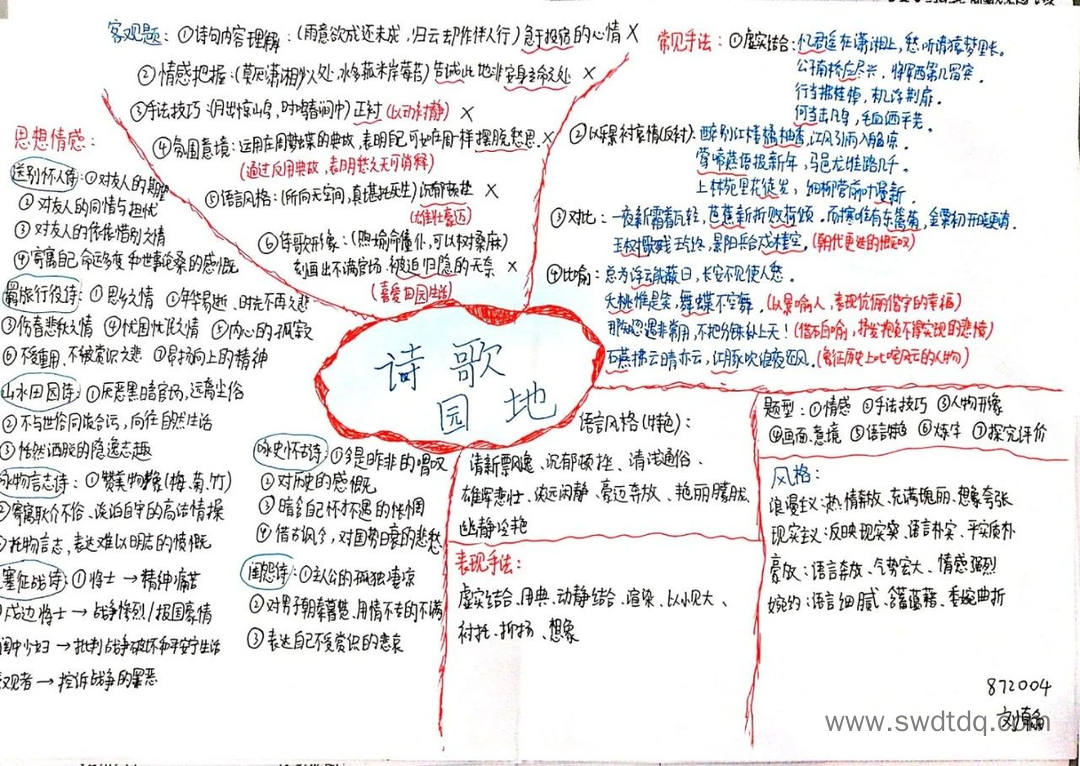 客观题：①诗句内容理解：(雨意欲成还未成，归云却作伴人行)急于投宿的心情 ×
②情感把握：(莫厌潇湘少人处，水多菰米岸莓苔)告诫此地非安身立命之处 ×
③手法技巧：(月出惊山鸟，时鸣春涧中)正衬(以动衬静) ×
④氛围意境：运用庄周梦蝶的典故，表明自己可如庄周一样摆脱愁思 ×
(通过反用典故，表明愁久无可消释)
⑤语言风格：(所向无空阔，真堪托死生)沉郁顿挫 ×
(雄壮豪迈)
⑥诗歌形象：
刻画出不满官场、被迫归隐的无奈 ×
(喜爱田园生活)
常见手法：①虚实结合：忆君遥在潇湘上，愁听清猿梦里长。
公子南桥应尽兴，将军西第几留宾。
何当击凡鸟，毛血洒平芜。
②以乐景衬哀情(反衬)：醉别江楼橘柚香，江风引雨入船凉。
莺啼燕语报新年，马邑龙堆路几千。
上林苑里花徒发，细柳营前叶漫新。
③对比：一夜新霜着瓦轻，芭蕉新折败荷倾。
④比喻：总为浮云能蔽日，长安不见使人愁。
夭桃惟是笑，舞蝶不空舞。
石燕拂云晴亦雨，江豚吹浪夜还风。
思想情感：
送别怀人诗：①对友人的期盼
②对友人的同情与担忧
③对友人的依依惜别之情
④寄寓自己命运多变和世事沧桑的感慨
羁旅行役诗：①思乡之情 ②年华易逝、时光不再之悲
③伤春悲秋之情 ④忧国忧民之情 ⑤内心的孤寂
⑥不受重用、不被赏识之悲 ⑦昂扬向上的精神
山水田园诗：①厌恶黑暗官场，远离尘俗
②不与世俗同流合污，向往自然生活
③恬然洒脱的隐逸志趣
咏物言志诗：①赞美物象(梅、菊、竹)
②寄寓耿介不俗、淡泊自守的高洁情操
托物言志，表达难以明言的愤慨
塞征战诗：①将士→精神痛苦
戍边将士→战争惨烈/报国豪情
闺中少妇→批判战争破坏和平安宁生活
观者→控诉战争的罪恶
咏史怀古诗：①今是昨非的嘆叹
②对历史的感慨
③暗含自己怀才不遇的怅惘
④借古讽今，对国势日衰的悲愁
闺怨诗：①主人公的孤独凄凉
②对男子朝秦暮楚、用情不专的不满
③表达自己不受赏识的悲哀
诗歌
园地
语言风格(特色)：
清新飘逸、沉郁顿挫、清浅通俗、
雄浑悲壮、淡远闲静、豪迈奔放、艳丽朦胧、
幽静冷艳
表现手法：
虚实结合、用典、动静结合、渲染、以小见大、
衬托、抑扬、想象
题型：①情感 ②手法技巧 ③人物形象
④画面、意境 ⑤语言特色 ⑥炼字 ⑦探究评价
风格：
浪漫主义：热情奔放、充满瑰丽、想象夸张
现实主义：反映现实、语言朴实、平实质朴
豪放：语言奔放、气势宏大、情感强烈
婉约：语言细腻、含蓄蕴藉、委婉曲折
872004
www.swdtdq.com